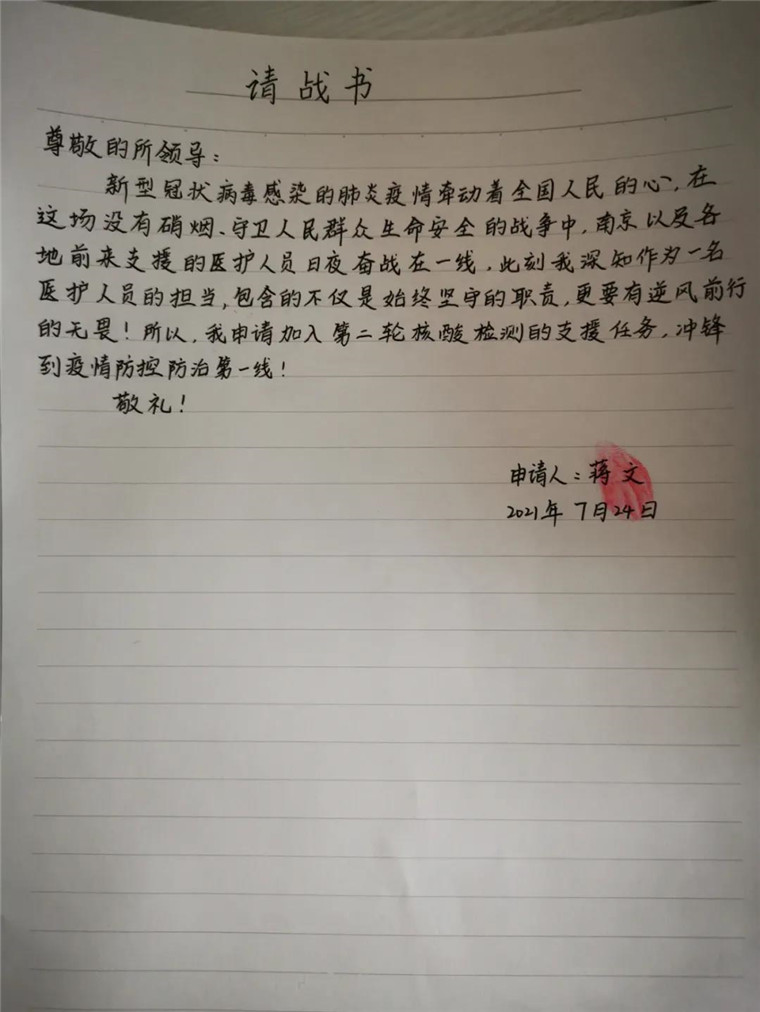 请战书
尊敬的所领导：
新型冠状病毒感染的肺炎疫情牵动着全国人民的心，在
这场没有硝烟、守卫人民群众生命安全的战争中，南京以及各
地前来支援的医护人员日夜奋战在一线，此刻我深知作为一名
医护人员的担当，包含的不仅是始终坚守的职责，更要有逆风前行
的无畏！所以，我申请加入第二轮核酸检测的支援任务，冲锋
到疫情防控防治第一线！
敬礼！
申请人：蒋文
2021年7月24日